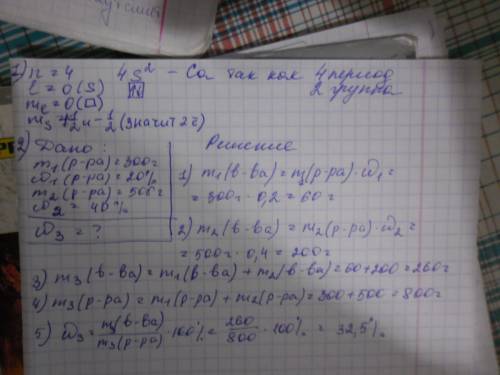 1) n = 4 4S² – Ca так как 4 период
l = 0 (S) ⇅ 2 группа
m_l = 0 (□)
m_s = +1/2 и -1/2 (значит 2 ē)
2) Дано: Решение
m₁(р-ра) = 300г
ω₁(р-ра) = 20%
m₂(р-ра) = 500г
ω₂ = 40%
ω₃ = ?
1) m₁(в-ва) = m₁(р-ра) · ω₁ =
= 300г · 0,2 = 60г
2) m₂(в-ва) = m₂(р-ра) · ω₂ =
= 500г · 0,4 = 200г
3) m₃(в-ва) = m₁(в-ва) + m₂(в-ва) = 60 + 200 = 260г
4) m₃(р-ра) = m₁(р-ра) + m₂(р-ра) = 300 + 500 = 800г
5) ω₃ = m₃(в-ва)/m₃(р-ра) · 100% = 260/800 · 100% = 32,5%